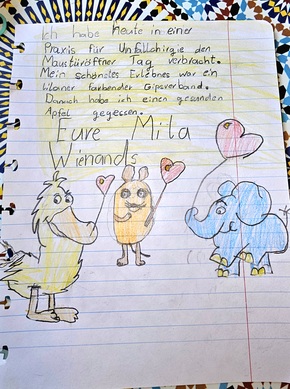 Ich habe heute in einer
Praxis für Unfallchirgie den
Maustüröffner Tag verbracht.
Mein schönstes Erlebnes war ein
kleiner farbender Gipsverband.
Danach habe ich einen gesunden
Apfel gegessen.
Eure Mila
Wienands